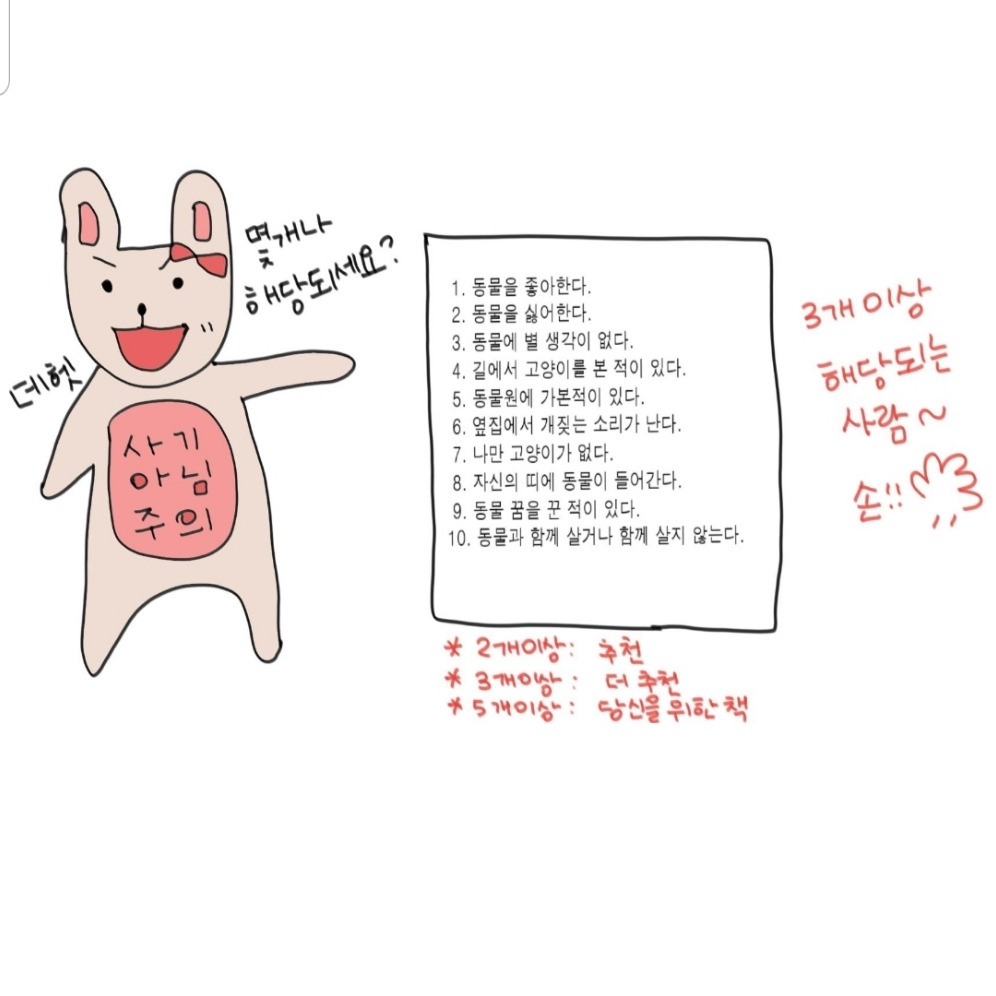 몇개나
해당되세요?
데헷
사기
아님
주의
1. 동물을 좋아한다.
2. 동물을 싫어한다.
3. 동물에 별 생각이 없다.
4. 길에서 고양이를 본 적이 있다.
5. 동물원에 가본적이 있다.
6. 옆집에서 개짖는 소리가 난다.
7. 나만 고양이가 없다.
8. 자신의 띠에 동물이 들어간다.
9. 동물 꿈을 꾼 적이 있다.
10. 동물과 함께 살거나 함께 살지 않는다.
* 2개이상: 추천
* 3개이상: 더 추천
* 5개이상: 당신을 위한 책
3개 이상
해당되는
사람~
손!!